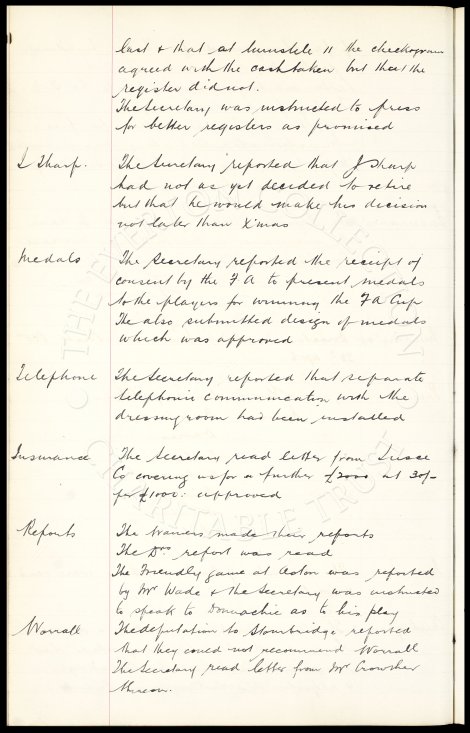 East & that at turnstile 11 the checkogram
agreed with the cash taken but that the
register did not.
The Secretary was instructed to press
for better registers as promised
Sharp. The Secretary reported that J Sharp
had not as yet decided to retire
but that he would make his decision
not later than X'mas
Medals The Secretary reported the receipt of
consent by the F A to present medals
to the players for winning the FA Cup
He also submitted design of medals
which was approved
Telephone The Secretary reported that separate
telephonic communication with the
dressing room had been installed
Insurance The Secretary read letter from
Co covering us for a further £2000 at 30/-
per £1000: approved
Reports The trainers made their reports
The Drs report was read
The Friendly game at Aston was reported
by Mr Wade & the Secretary was instructed
to speak to Donnachie as to his play
Worrall The deputation to Stourbridge reported
that they could not recommend Worrall
The Secretary read letter from Mr Crowther
thereon.
THE EVERTON COLLECTION
CHARITABLE TRUST